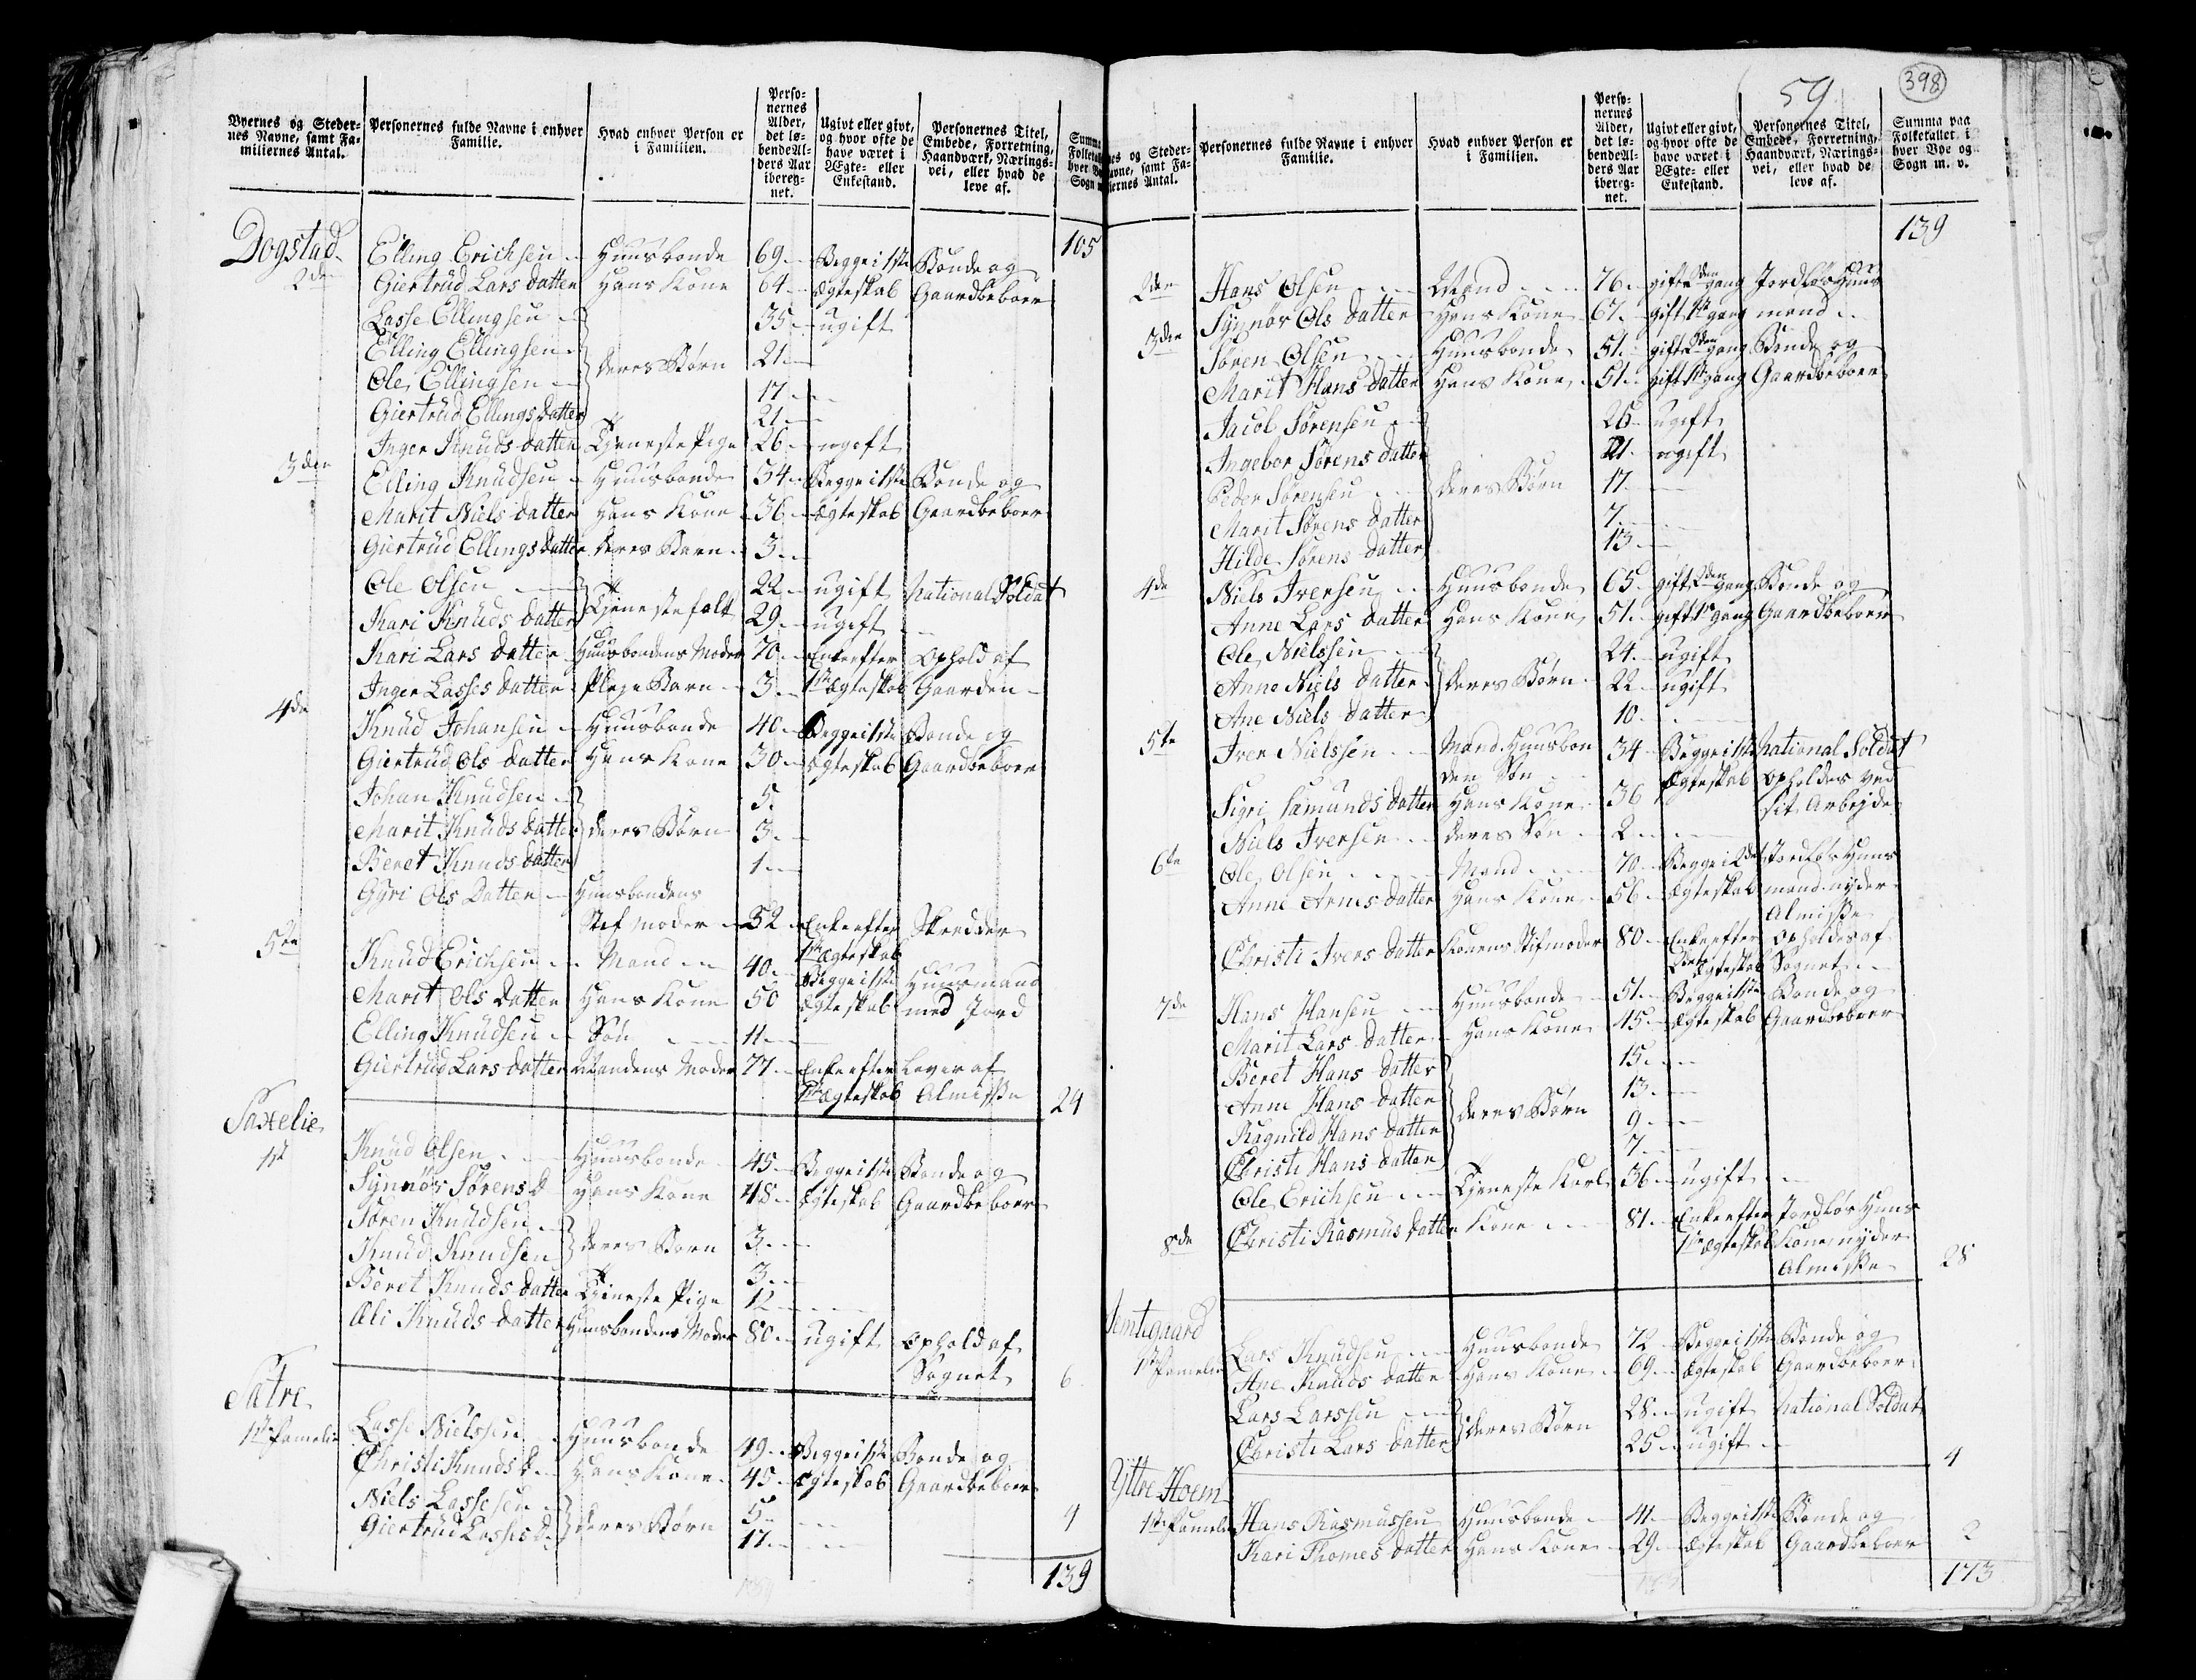 Byernes og Stedernes Navne, samt Familiernes Antal.
Personernes fulde Navne i enhver Familie.
Hvad enhver Person er i Familien.
Personernes Alder, det løbende Alders Aar iberegnet.
Ugivt eller givt, og hvor ofte de have været i Ægte- eller Enkestand.
Personernes Titel, Embede, Forretning, Haandværk, Næringsvei, eller hvad de leve af.
Summa Folketal hver B Sogn m
105
Dogstad
2den Elling Erichsen Huusbonde 69 Begge i 1ste Bonde og
Giertrud Lars datter Hans Kone 64 Ægteskab Gaardbeboer
Lasse Ellingsen 35 ugift
Elling Ellingsen 21
Ole Ellingsen deres Børn 17
Giertrud Ellings datter 21
Inger Knuds datter Tjeneste Pige 26 ugift
3die Elling Knudsen Huusbonde 34 Begge i 1ste Bonde og
Marit Niels datter Hans Kone 36 Ægteskab Gaardbeboer
Giertrud Ellings datter deres Barn 3
Ole Olsen 22 ugift National Soldat
Kari Knuds datter Tjenestefolk 29 ugift
Kari Lars datter Huusbondens Moder 70 Enke efter Ophold af
Inger Lasses datter Pleje Barn 3 1ste Ægteskab Gaarden
4de Knud Johansen Huusbonde 40 Begge i 1ste Bonde og
Giertrud Ols datter Hans Kone 30 Ægteskab Gaardbeboer
Johan Knudsen 5
Marit Knuds datter deres Børn 3
Beret Knuds datter 1
Gyri Ols Datter Huusbondens
Stef moder 52 Enke efter Skredder
1ste Ægteskab
5te Knud Erichsen Mand 40 Begge i 1ste Huusmand
Marit Ols datter Hans Kone 50 Ægteskab med Jord
Elling Knudsen Søn 11
Giertrud Lars datter Mandens Moder 77 Enke efter Lever af
1ste Ægteskab Almisse 24
Saxelie
1st Knud Olsen Huusbonde 45 Begge i 1ste Bonde og
Synnør Sørens D Hans Kone 48 Ægteskab Gaardbeboer
Søren Knudsen 3
Knud Knudsen deres Børn 3
Beret Knuds datter Tjeneste Pige 12
Ali Knuds datter Huusbondens Moder 80 ugift Ophold af
Sognet 6
Sætre
1ste Famelie Lasse Nielssen Huusbonde 49 Begge i 1ste Bonde og
Christi Knuds D. Hans Kone 45 Ægteskab Gaardbeboer
Niels Lassesen 5
Giertrud Lasses D. deres Børn 17
4
139
59 398
es og Steder- avne, samt Fa- iernes Antal.
Personernes fulde Navne i enhver Familie.
Hvad enhver Person er i Familien.
Personernes Alder, det løbende Alders Aar iberegnet.
Ugivt eller givt, og hvor ofte de have været i Ægte- eller Enkestand.
Personernes Titel, Embede, Forretning, Haandværk, Næringsvei, eller hvad de leve af.
Summa paa Folketallet i hver Bye og Sogn m. v.
139
2den Hans Olsen Mand 76 gift 2den gang Jordløs Huus
Synnør Ols datter Hans Kone 67 gift 1te gang mand
3die Søren Olsen Huusbonde 51 gift 2den gang Bonde og
Marit Hans datter Hans Kone 51 gift 1te gang Gaardbeboer
Jacob Sørensen 25 ugift
Ingebor Sørens datter 21 ugift
Peder Sørensen deres Børn 17
Marit Sørens datter 7
Hilde Sørens datter 13
4de Niels Iversen Huusbonde 65 gift 2den gang Bonde og
Anne Lars datter Hans Kone 51 gift 1te gang Gaardbeboer
Ole Nielssen 24 ugift
Anne Niels datter deres Børn 22 ugift
Ane Niels datter 10
5te Iver Nielssen Mand Huusbon 34 Begge i 1ste National Soldat
den Søn Ægteskab opholdes ved
Sigri Samunds datter Hans Kone 36 sit Arbejde
Niels Iversen deres Søn 2
6te Ole Olsen Mand 70 Begge i 2det Jordløs Huus
Anne Arnes datter Hans Kone 56 Ægteskab mand nyder
Almisse
Christi Ivers datter Konens Stifmoder 80 Enke efter opholdes af
2det Ægteskab Sognet
7de Hans Hansen Huusbonde 51 Begge i 1ste Bonde og
Marit Lars datter Hans Kone 45 Ægteskab Gaardbeboer
Beret Hans datter 15
Anne Hans datter 13
Ragnild Hans datter deres Børn 9
Christi Hans datter 7
Ole Erichsen Tjeneste Karl 36 ugift
8de Christi Rasmus datter Kone 81 Enke efter Jordløs Huus
1ste Ægteskab Kone nyder
Almisse 28
Jemtegaard
1ste Famelie Lars Knudsen Huusbonde 72 Begge i 1ste Bonde og
Ane Knuds datter Hans Kone 69 Ægteskab Gaardbeboer
Lars Larssen 28 ugift National Soldat
Christi Lars datter deres Børn 25 ugift
4
Yttre Hoem
1ste Famelie Hans Rasmussen Huusbonde 41 Begge i 1ste Bonde og
Kari Thomes datter Hans Kone 29 Ægteskab Gaardbeboer 2
173